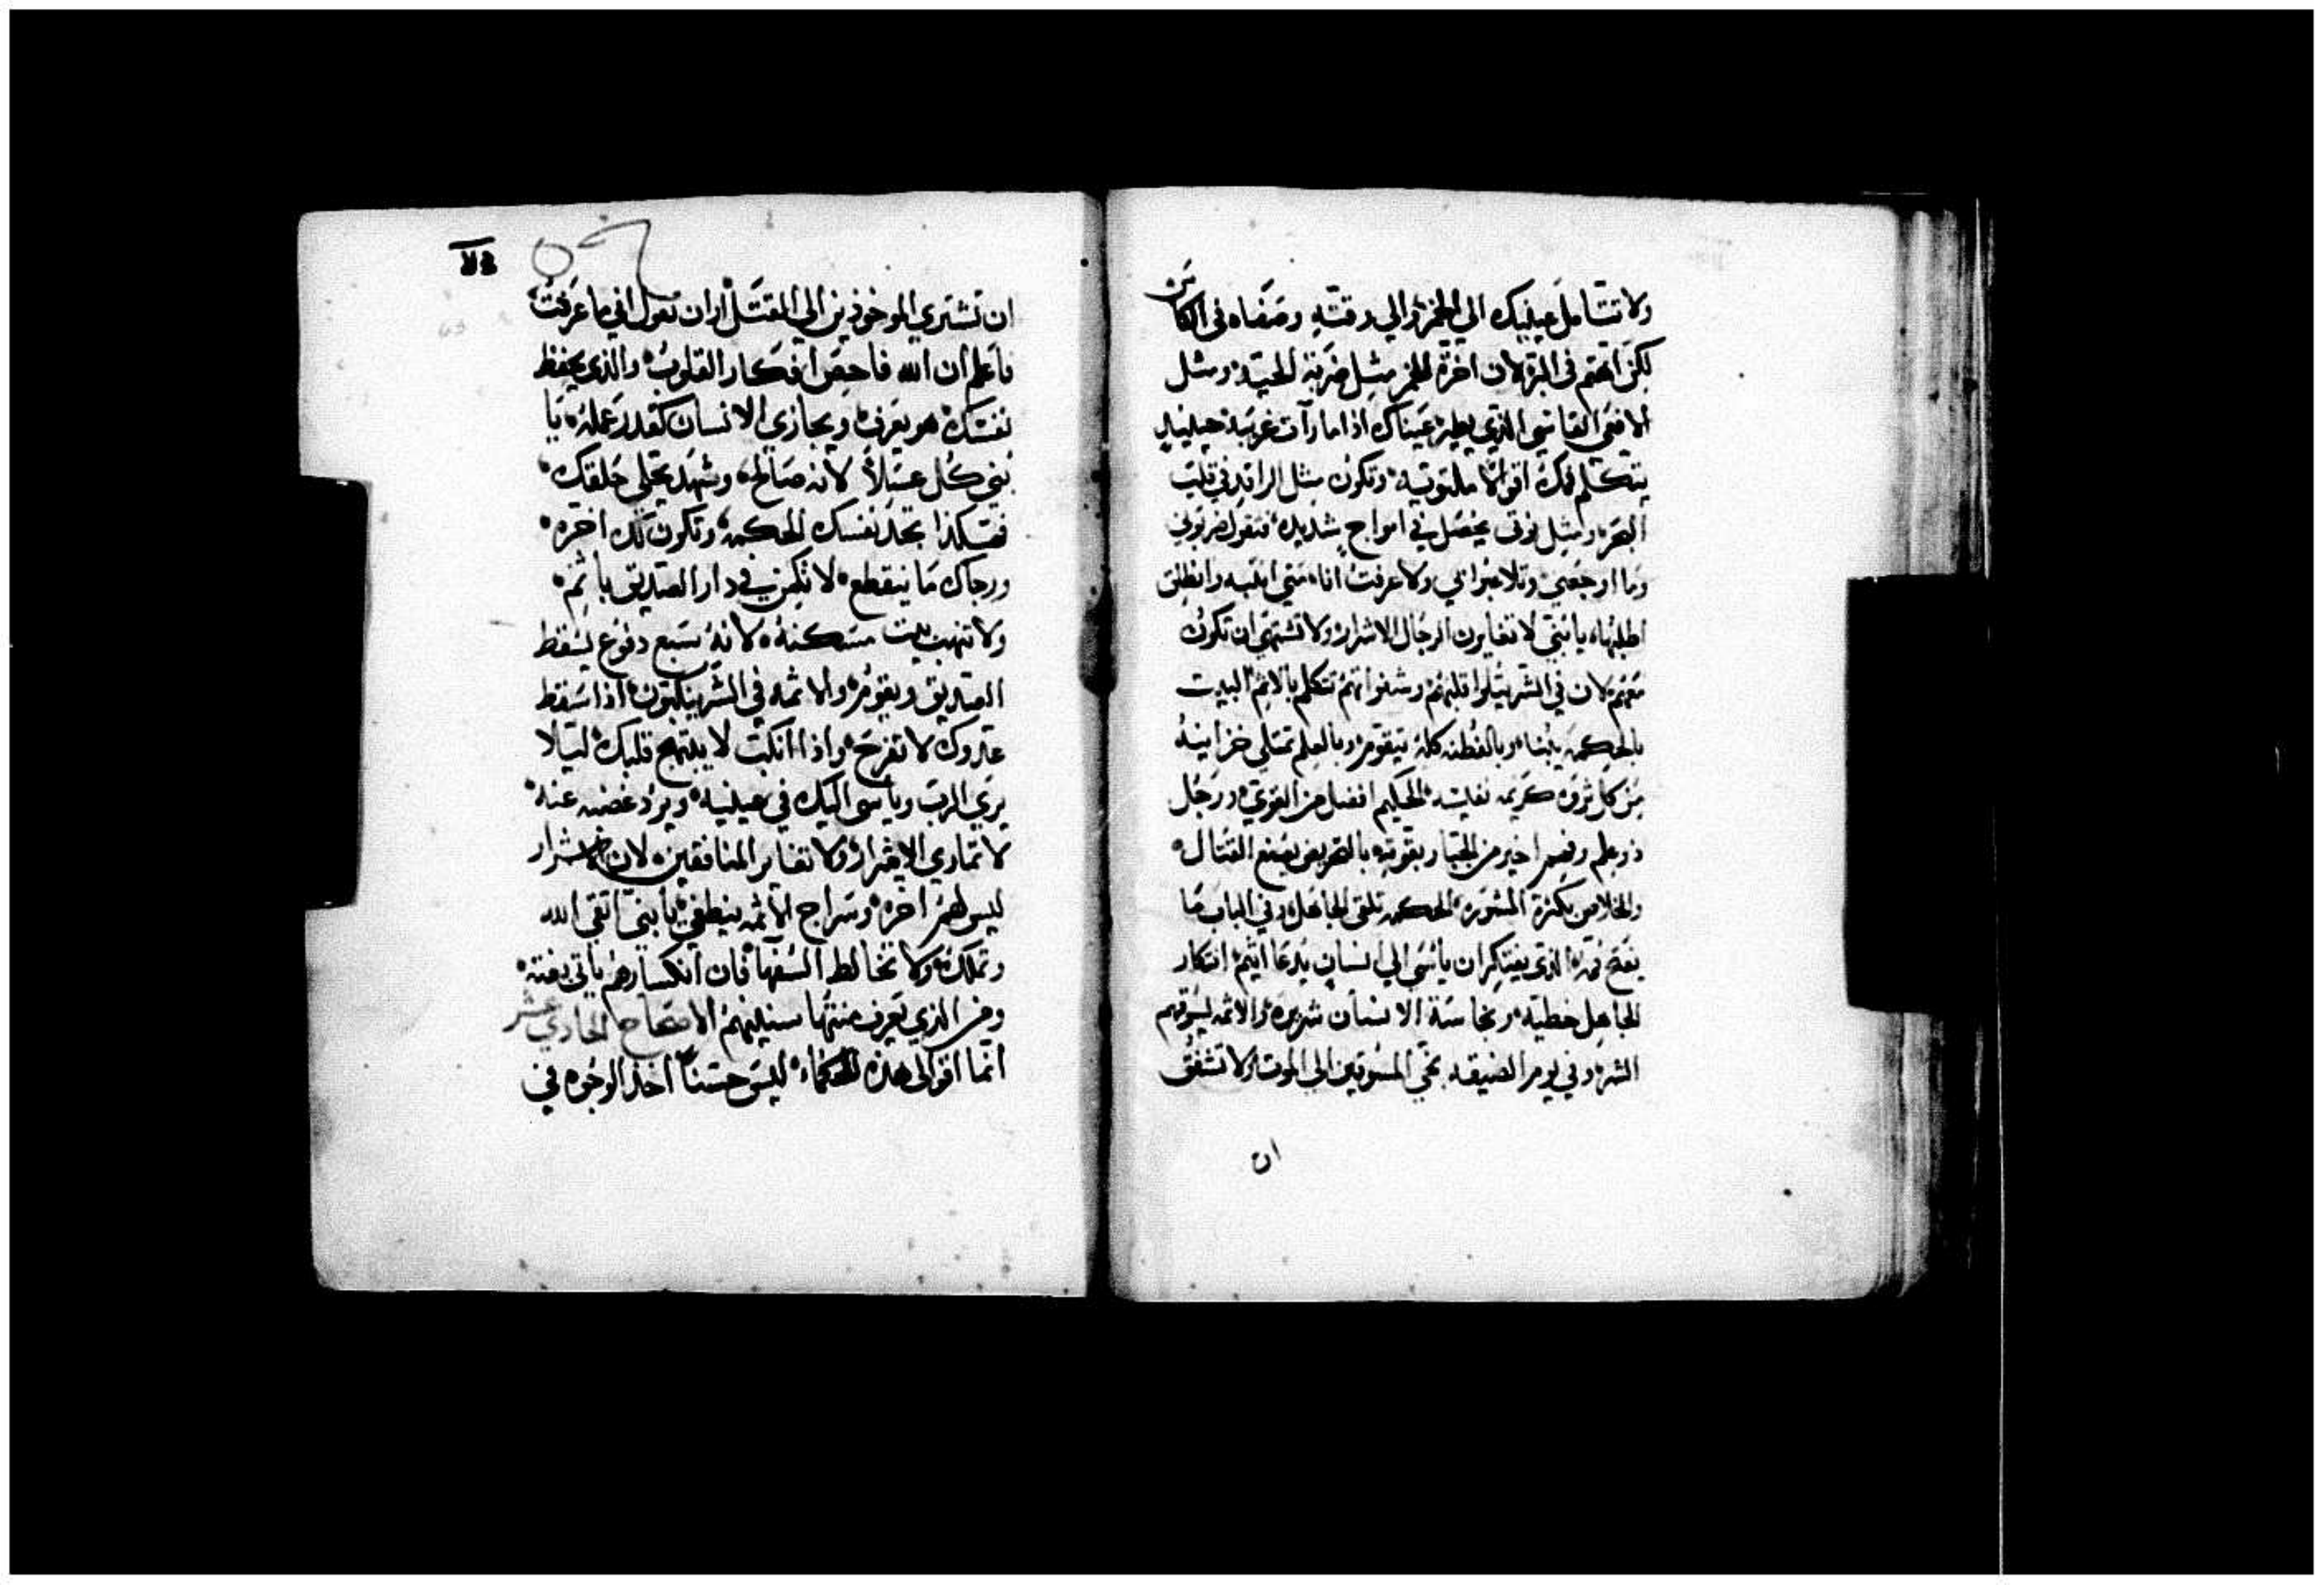 ولا تتامل عينيك الي الخمر والي دقته وصفاه في الكاس
لكن اتهم في البر لان اخرة الخمر مثل ضربة الحية ومثل
الافعي القاسي الذي يطير عيناك اذا ما رآت غريبة حينيد
يتكلم فمك اقوالا ملتوتيه وتكون مثل الراقد في قلب
البحر ومثل نوتي يحصل في امواج شديده فتقول ضربوني
وما اوجعني وتلاعبوا بي ولا عرفت انا متي انتبه وانطلق
اطلبها يا بني لا تغاير الرجال الاشرار ولا تشتهي ان تكون
معهم لان في الشر يتلوا قلبهم وشفواتهم تتكلم بالاثم البيت
بالحكمه يبنا وبالفطنه كله يتقوم وبالعلم تمتلي خزاينه
من كل ثروه كريمه نفيسه الحكيم افضل من القوي ورجل
ذو علم وفهم اخير من الجبار بقوته بالتحريض يصنع القتال
والخلاص بكثرة المشوره الحكمه تلقي الجاهل وفي الباب ما
يفتح فمه الذي يفتكر ان ياسي الي انسان يدعا اثيم افتكار
الجاهل خطيه ونجاسة الانسان شريره والاثمه ليسوقهم
الشر وفي يوم الضيقه نجي المسوقين الي الموت ولا تشفق
ان
ان تشتري الموخوذين الي المقتل ان تقول اني ما عرفت
فاعلم ان الله فاحص افكار القلوب والذي يحفظ
نفسك هو يعرف ويجازي الانسان كقدر عمله يا
بني كل عسلا لانه صالح وشهد يحلي حلقك
فهكذا تجد نفسك الحكمه وتكون لك اخره
ورجاك ما ينقطع لا تكمن في دار الصديق باثم
ولا تنهب بيت مسكنه لانه سبع دفوع يسقط
الصديق ويقوم والاثمه في الشر ينكبون اذا سقط
عدوك لا تفرح واذا انكب لا يبتهج قلبك ليلا
يري الرب وياسي اليك في عينيه ويرد غضبه عنه
لا تماري الاشرار ولا تغاير المنافقين لان الاشرار
ليس لهم اخره وسراج الاثمه ينطفي يا بني اتقي الله
وتملك ولا تخالط السفها فان انكسارهم ياتي بغته
ومن الذي يعرف منتها سنينهم الاصحاح الحادي عشر
انما اقوالي هذه للحكماء ليس حسنا اخذ الوجوه في